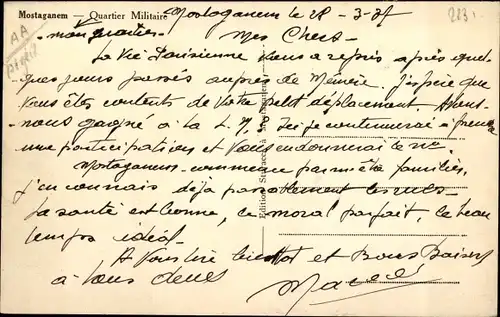 Mostaganem — Quartier Militaire
Mostaganem le 28-3-37
223.
AA
mon quartier
Mes Chers -
La Vie Parisienne vous a repris, après quel-
ques jours passés auprès de Mémère. J'espère que
vous êtes contents de votre petit déplacement. Avons-
nous gagné à la L.N, ? Ici je continuerai à prendre
une participation et vous en donnerai le no.
Mostaganem commence à m'être familier,
j'en connais déjà passablement les rues
La santé est bonne, le moral parfait, le beau
temps idéal
A vous lire bientôt et Bons Baisers
à vous deux
Marcel
Edition Mostaganem